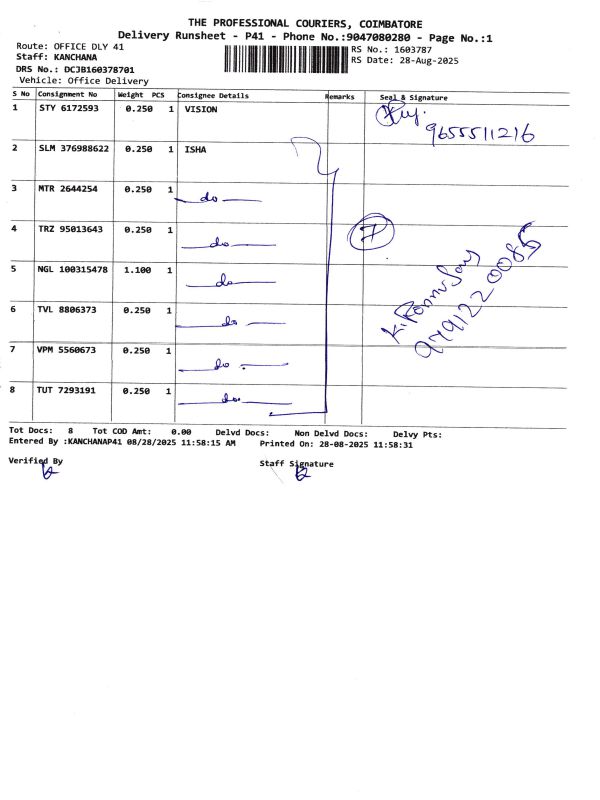 THE PROFESSIONAL COURIERS, COIMBATORE
Delivery Runsheet - P41 - Phone No.:9047080280 - Page No.:1
Route: OFFICE DLY 41
RS No.: 1603787
Staff: KANCHANA
RS Date: 28-Aug-2025
DRS No.: DCJB160378701
Vehicle: Office Delivery
S No Consignment No Weight PCS Consignee Details Remarks Seal & Signature
1 STY 6172593 0.250 1 VISION
9655511216
2 SLM 376988622 0.250 1 ISHA
3 MTR 2644254 0.250 1 do
4 TRZ 95013643 0.250 1 do
7
5 NGL 100315478 1.100 1 do
6 TVL 8806373 0.250 1 do
7 VPM 5560673 0.250 1 do
8 TUT 7293191 0.250 1 do
Tot Docs: 8 Tot COD Amt: 0.00 Delvd Docs: Non Delvd Docs: Delvy Pts:
Entered By :KANCHANAP41 08/28/2025 11:58:15 AM Printed On: 28-08-2025 11:58:31
Verified By
Staff Signature